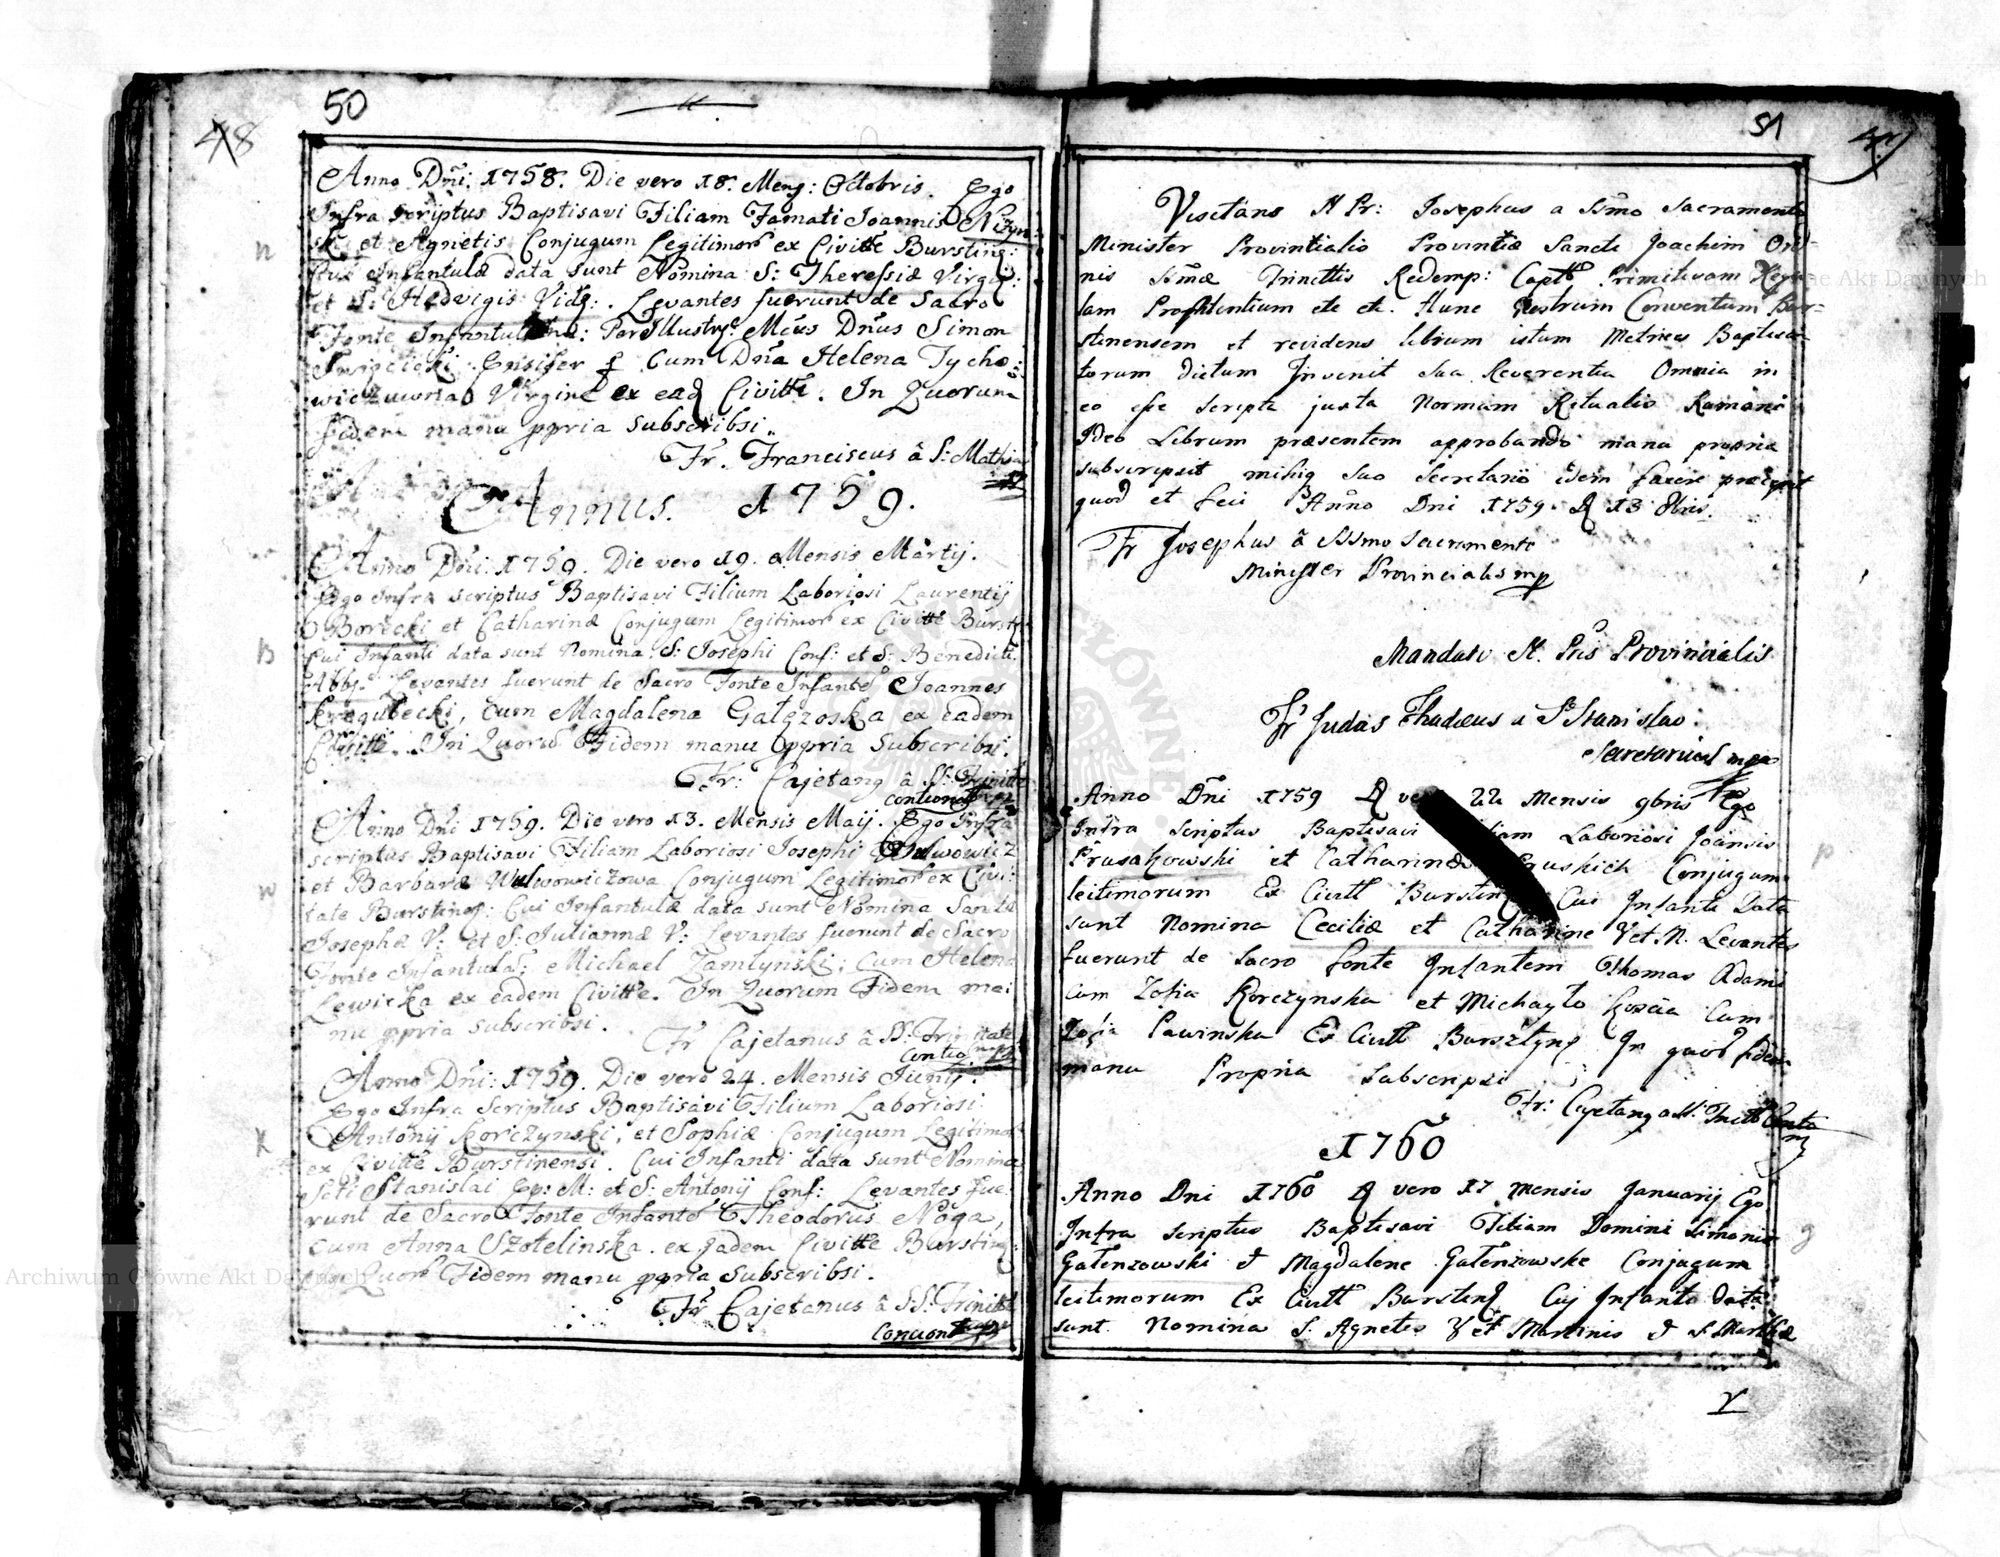 50
48
Anno Dñi: 1758. Die vero 18. Mens: Octobris. Ego
Infra scriptus Baptisavi Filiam Famati Joannis Nizyn:
ski et Agnetis Conjugum Legitimor ex Civitte Bursting:
Cui Infantulæ data sunt Nomina S: Theressiæ Virg:
et S: Hedvigis Vid: . Levantes fuerunt de Sacro
Fonte Infantulam: PerIllustris Mgcus Dnus Simon
Ensifer Cum Dña Helena Tycho:
Virgine ex ead Civitte. In Quorum
fidem manu ppria Subscribsi.
Fr. Franciscus â S: Mathia
mp
n
Annus. 1759.
Anno Dñi: 1759. Die vero 19. Mensis Martij.
Ego Infra scriptus Baptisavi Filium Laboriosi Laurentij
Borecki et Catharinæ Conjugum Legitimor ex Civitte Burstyn
Cui Infanti data sunt Nomina: S: Josephi Conf: et S: Benedicti
Abb: Levantes fuerunt de Sacro Fonte Infante Joannes
Kregulecki, cum Magdalena Gałęzoska ex eadem
Civitte. In Quoru Fidem manu ppria Subscribsi.
B
Fr: Cajetang â SS: Trinitte
Concionat mp
Anno Dñi 1759. Die vero 13. Mensis Maij. Ego Infra
scriptus Baptisavi Filiam Laboriosi Josephi Wulwowicz
et Barbaræ Wulwowiczowa Conjugum Legitimor ex Civi:
tate Bursting: Cui Infantulæ data sunt Nomina Sanctæ
Josephæ V: et S: Juliannæ V: Levantes fuerunt de Sacro
Fonte Infantula: Michael Zamłynski: Cum Helena
Lewicka ex eadem Civitte. In Quorum Fidem ma:
nu ppria Subscribsi.
w
Fr Cajetanus â SS. Trinitate
Contio: mp
Anno Dñi: 1759. Die vero 24. Mensis Junij.
Ego Infra Scriptus Baptisavi Filium Laboriosi
Antonij Korczynski, et Sophiæ Conjugum Legitimor
ex Civitte Burstinensi. Cui Infanti data sunt Nomina
Scti Stanislai Ep: M: et S: Antonij Conf: Levantes fue:
runt de Sacro Fonte Infante Theodorus Noga,
cum Anna Szotelinska. ex Eadem Civitte Bursting:
In Quor Fidem manu ppria Subscribsi.
K
Fr Cajetanus â S:S: Trinitte
Concionat mp
51
Visitans A Pr: Josephus a SSmo Sacramento
Minister Provintialis Provintiæ Sancti Joachim Ordi-
nis SSmæ Trinittis Redemp: Captt Primitivam Regu
lam Profitentium etc etc. Hunc Nostrum Conventum Bur-
stinensem et revidens librum istum Metrices Baptisa-
torum dictum Invenit sua Reverentia Omnia in
eo esse scripta juxta Normam Ritualis Romani
Ideo Librum præsentem approbando manu propria
subscripsit mihiq suo Secretario idem facere præcepit
quod et feci Anno Dni 1759. D 13 Xbris.
Fr Josephus â SSmo Sacramento
Minister Provincialis mp
Mandato A. Pris Provincialis
Fr Judas Thadæus a S. Stanislao:
Secretarius mpa
Anno Dñi 1759 D vero 22 Mensis 9bris Ego
Infra scriptus Baptisavi Filiam Laboriosi Joannis
Prusakowski et Catharinæ Pruskich Conjugum
leitimorum Ex Civitt Bursting Cui Infanti Data
sunt Nomina Ceciliæ et Catharinæ V et M. Levantes
fuerunt de Sacro fonte Infantem Thomas Adami
Cum Zofia Korczynska et Michayło Cum
Zofia Pawinska Ex Civitt Bursztyn In quor fidem
manu Propria Subscripsi
p
Fr: Cajetang a SS: Trinitt Conta
mp
1760
Anno Dni 1760 D vero 17 Mensis Januarij Ego
Infra scriptus Baptisavi Filiam Domini Simonis
Gałenzowski et Magdalene Gałenzowske Conjugum
leitimorum Ex Civitt Bursting Cuj Infanti data
sunt Nomina S. Agnetis V et Martinis et S. Marthæ
g
Archiwum Główne Akt Dawnych